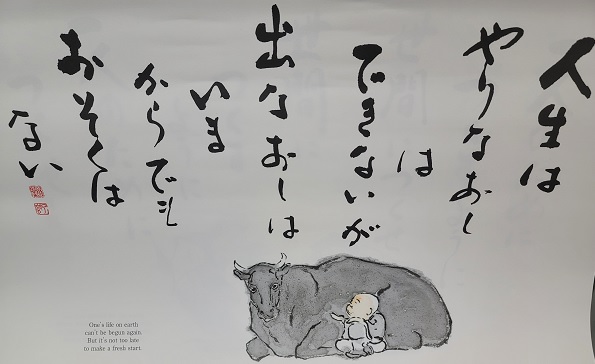 人生は
やりなおし
は
できないが
出なおしは
いま
からでも
おそくは
ない
One's life on earth
can't be begun again.
But it's not too late
to make a fresh start.